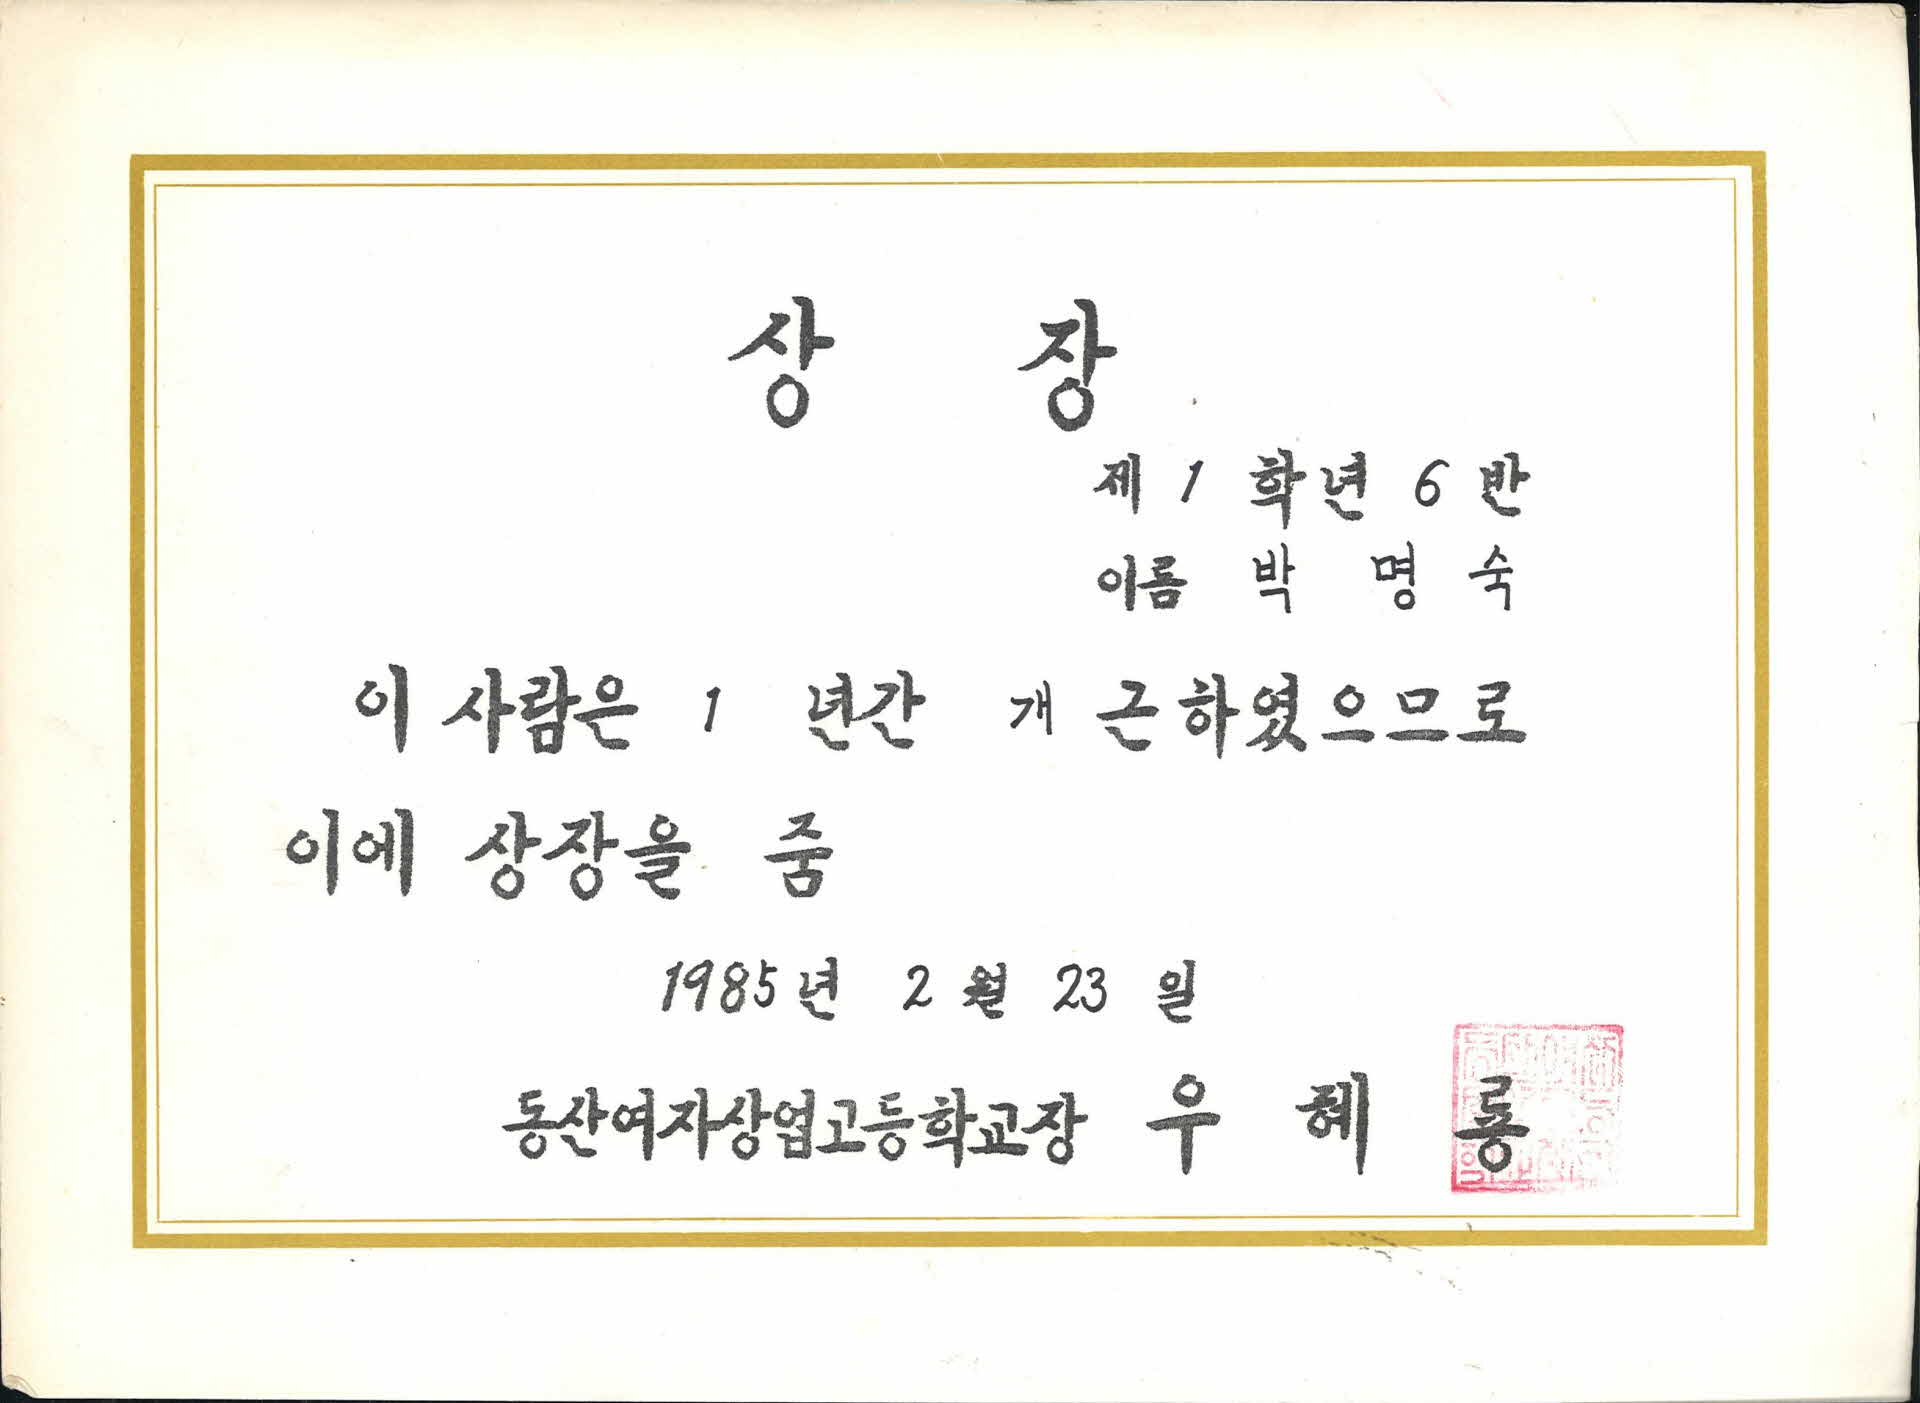 상 장
제 1 학년 6 반
이름 박 명 숙
이 사람은 1 년간 개 근하였으므로
이에 상장을 줌
1985년 2 월 23 일
동산여자상업고등학교장 우 혜 룡